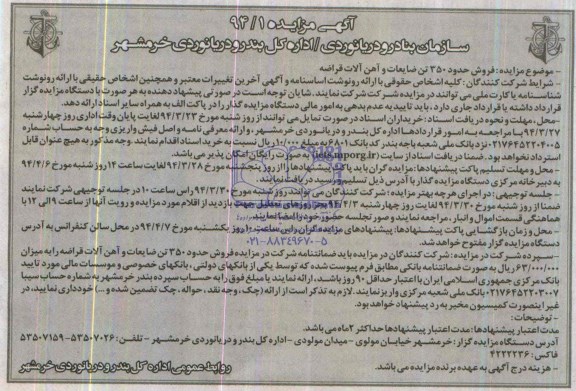 آگهی مزایده ۹۴/۱
سازمان بنادر و دریانوردی / اداره کل بندر و دریانوردی خرمشهر
- موضوع مزایده: فروش حدود ۳۵۰ تن ضایعات و آهن آلات قراضه
- شرایط شرکت کنندگان: کلیه اشخاص حقوقی با ارائه رونوشت اساسنامه و آگهی آخرین تغییرات معتبر و همچنین اشخاص حقیقی با ارائه رونوشت
شناسنامه یا کارت ملی می توانند در مزایده شرکت نمایند. شایان توجه است در صورتی پیشنهاد دهنده به هر صورت با دستگاه مزایده گزار
قرارداد داشته یا قرارداد جاری دارد، باید تاییدیه عدم بدهی به امور مالی دستگاه مزایده گذار را در پاکت الف به همراه سایر اسناد ارائه دهد.
- محل، مهلت و نحوه دریافت اسناد: خریداران اسناد در صورت تمایل می توانند از روز شنبه مورخ ۹۴/۳/۲۳ لغایت پایان وقت اداری روز چهارشنبه
۹۴/۳/۲۷ با مراجعه به امور قراردادها اداره کل بندر و دریانوردی خرمشهر، و ارائه معرفی نامه و اصل فیش واریزی وجه به حساب شماره
۲۱۷۶۴۶۵۲۲۰۴۰۰۵ نزد بانک ملی شعبه باجه بندر کد بانک ۶۸۰۱ به مبلغ ۱۰/۰۰۰ ریال نسبت به خرید اسناد اقدام نمایند. وجه مذکور به هیچ عنوان قابل
استرداد نخواهد بود. ضمنا دریافت اسناد از سایت به صورت رایگان امکان پذیر می باشد.
- محل و مهلت تسلیم پاکت پیشنهادها: مزایده گران باید پاکت پیشنهادها را از روز پنجشنبه مورخ ۹۴/۳/۲۸ لغایت ساعت ۱۴ روز شنبه مورخ ۹۴/۴/۶
به دبیرخانه مرکزی دستگاه مزایده گذار با آدرس ذیل تسلیم و رسید دریافت نمایند.
- جلسه توجیهی: در اجرای هر چه بهتر مزایده: شرکت کنندگان می توانند روز شنبه مورخ ۹۴/۳/۳۰ راس ساعت ۱۰ در جلسه توجیهی شرکت نمایند
ضمنا از روز شنبه مورخ ۹۴/۳/۳۰ لغایت روز چهارشنبه ۹۴/۴/۳ بجز روزهای تعطیل جهت بازدید از اقلام مورد مزایده و رویت آنها از ساعت ۹ الی ۱۲ با
هماهنگی قسمت اموال و انبار، مراجعه نمایند و صورتجلسه حضور خود را امضا نمایند.
- محل و زمان بازگشایی پاکت پیشنهادها: پیشنهادهای مزایده گران راس ساعت ۱۰ روز یکشنبه مورخ ۹۴/۴/۷ در محل سالن کنفرانس به آدرس
دستگاه مزایده گزار مفتوح خواهد شد.
- سپرده شرکت در مزایده: شرکت کنندگان در مزایده باید ضمانتنامه شرکت در مزایده فروش حدود ۳۵۰ تن ضایعات و آهن آلات قراضه را به میزان
۶۳/۰۰۰/۰۰۰ ریال به صورت ضمانتنامه بانکی مطابق فرم پیوست شده که توسط یکی از بانکهای دولتی، بانکهای خصوصی و موسسات مالی مورد تایید
بانک مرکزی جمهوری اسلامی ایران با اعتبار حداقل ۹۰ روز باشند، ارائه نمایند یا مبلغ فوق را به حساب سپرده بندر خرمشهر به شماره حساب سیبا
۲۱۷۶۴۶۵۲۲۳۰۰۷ بانک ملی شعبه مرکزی واریز نمایند. لازم به تذکر است از ارائه (چک، وجه نقد، حواله، چک تضمین شده و ...) خودداری نمایید، در
غیر اینصورت کمیسیون مخیر به رد پیشنهاد خواهد بود.
- توضیحات:
مدت اعتبار پیشنهادها: مدت اعتبار پیشنهادها حداکثر ۳ ماه می باشد.
آدرس دستگاه مزایده گزار: خرمشهر خیابان مولوی - میدان مولودی - اداره کل بندر و دریانوردی خرمشهر - تلفن: ۵۳۵۰۷۰۲۶ - ۵۳۵۰۷۱۵۹
فاکس: ۴۲۲۲۲۳۶
- هزینه درج آگهی به عهده برنده مزایده می باشد.
روابط عمومی اداره کل بندر و دریانوردی خرمشهر
۰۲۱-۸۸۳۴۹۶۷۰-۵